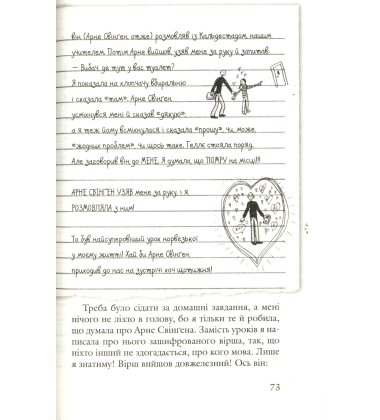 він (Арне Свінґен, отже) розмовляв із Кальдестадом, нашим
учителем. Потім Арне вийшов, узяв мене за руку й запитав:
— Вибач, де тут у вас туалет?
Я показала на хлопчачу вбиральню
і сказала «там». Арне Свінґен
усміхнувся мені й сказав «дякую»,
а я теж йому всміхнулася і сказала «прошу». Чи, може,
«жодних проблем». Чи щось таке. Гелле стояла поряд.
Але заговорив він до МЕНЕ. Я думала, що ПОМРУ на місці!!!
АРНЕ СВІНҐЕН УЗЯВ мене за руку, і я
РОЗМОВЛЯЛА з ним!
То був найсупровіший урок норвезької
у моєму житті! Хай би Арне Свінґен
приходив до нас на зустрічі хоч щотижня!
Треба було сідати за домашні завдання, а мені
нічого не лізло в голову, бо я тільки те й робила,
що думала про Арне Свінґена. Замість уроків я на-
писала про нього зашифрованого вірша, так, що
ніхто інший не здогадається, про кого мова. Лише
я знатиму! Вірш вийшов довжелезний! Ось він:
73